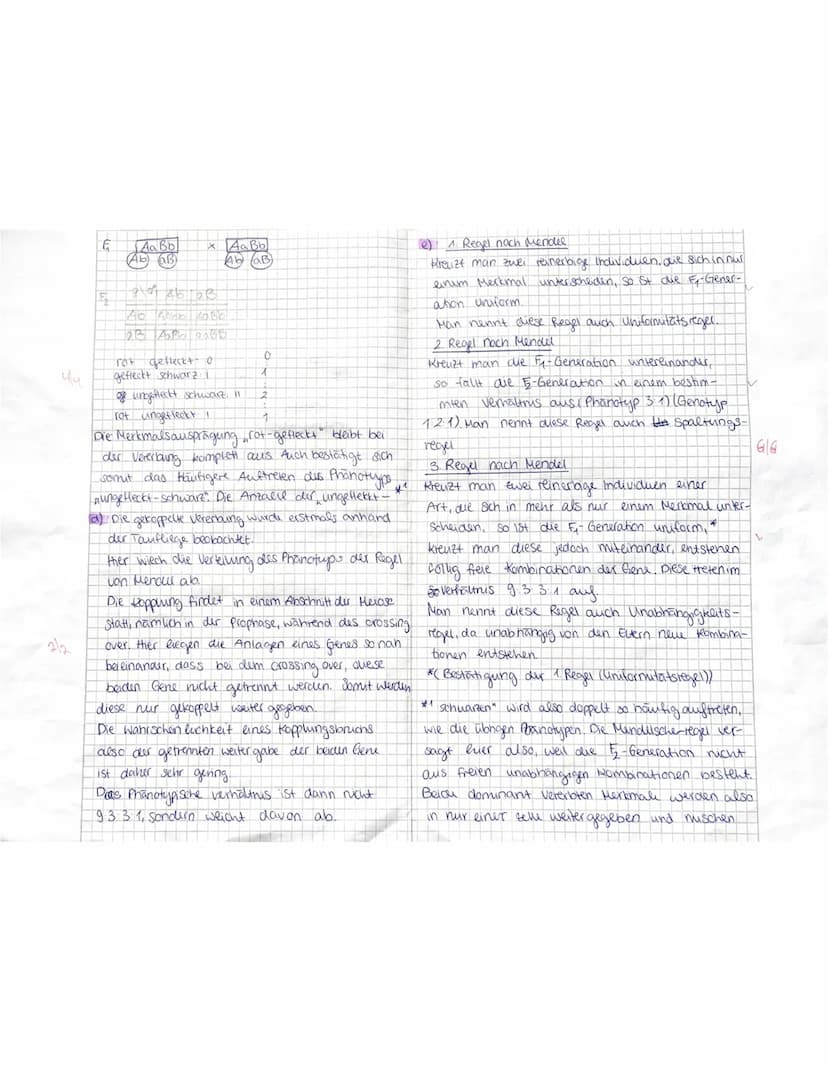 F₁ AaBb x AaBb
Ab aB Ab aB
F₂ ♀\♂ Ab aB
Ab AAbb AaBb
aB AaBb aaBB
rot gefleckt 0 0
gefleckt schwarz I 1
ungefleckt schwarz II 2
rot ungefleckt I 1
4/4
Die Merkmalsausprägung „rot-gefleckt" bleibt bei
der Vererbung komplett aus. Auch bestätigt sich
somit das Häufigere Auftreten des Phänotyps
„ungefleckt-schwarz". Die Anzahl der „ungefleckt- *¹
d) Die gekoppelte Vererbung wurde erstmals anhand
der Taufliege beobachtet.
Hier wiech die Verteilung des Phänotyps der Regel
von Mendel ab.
Die Kopplung findet in einem Abschnitt der Meiose
statt, nämlich in der Prophase, während des crossing
over. Hier liegen die Anlagen eines Genes so nah
2/2
beieinander, dass bei dem crossing over, diese
beiden Gene nicht getrennt werden. Somit werden
diese nur gekoppelt weiter gegeben.
Die Wahrscheinlichkeit eines Kopplungsbruchs
also der getrennten weitergabe der beiden Gene
ist daher sehr gering
Das Phänotypische verhältnis ist dann nicht
9:3:3:1, sondern weicht davon ab.
e) 1. Regel nach Mendel
Kreuzt man zwei reinerbige Individuen, die sich in nur
einem Merkmal unterscheiden, so ist die F₁-Gener-
ation uniform.
Man nennt diese Regel auch Uniformitätsregel.
2. Regel nach Mendel
Kreuzt man die F₁-Generation untereinander,
so fällt die F₂-Generation in einem bestim-
mten Verhältnis aus (Phänotyp 3:1) (Genotyp
1:2:1). Man nennt diese Regel auch Spaltungs-
regel
6/6
3. Regel nach Mendel
Kreuzt man zwei reinerbige Individuen einer
Art, die sich in mehr als nur einem Merkmal unter-
scheiden, so ist die F₁-Generation uniform, *
kreuzt man diese jedoch miteinander, entstehen
völlig freie Kombinationen der Gene. Diese treten im
Verhältnis 9:3:3:1 auf.
Man nennt diese Regel auch Unabhängigkeits-
regel, da unabhängig von den Eltern neue Kombina-
tionen entstehen.
*(Bestätigung der 1. Regel (Uniformitätsregel))
*¹ schwarzen" wird also doppelt so häufig auftreten,
wie die übrigen Phänotypen. Die Mendelsche-regel ver-
sagt hier also, weil die F₂-Generation nicht
aus freien unabhängigen Kombinationen besteht.
Beide dominant vererbten Merkmale werden also
in nur einer weitergegeben und mischen